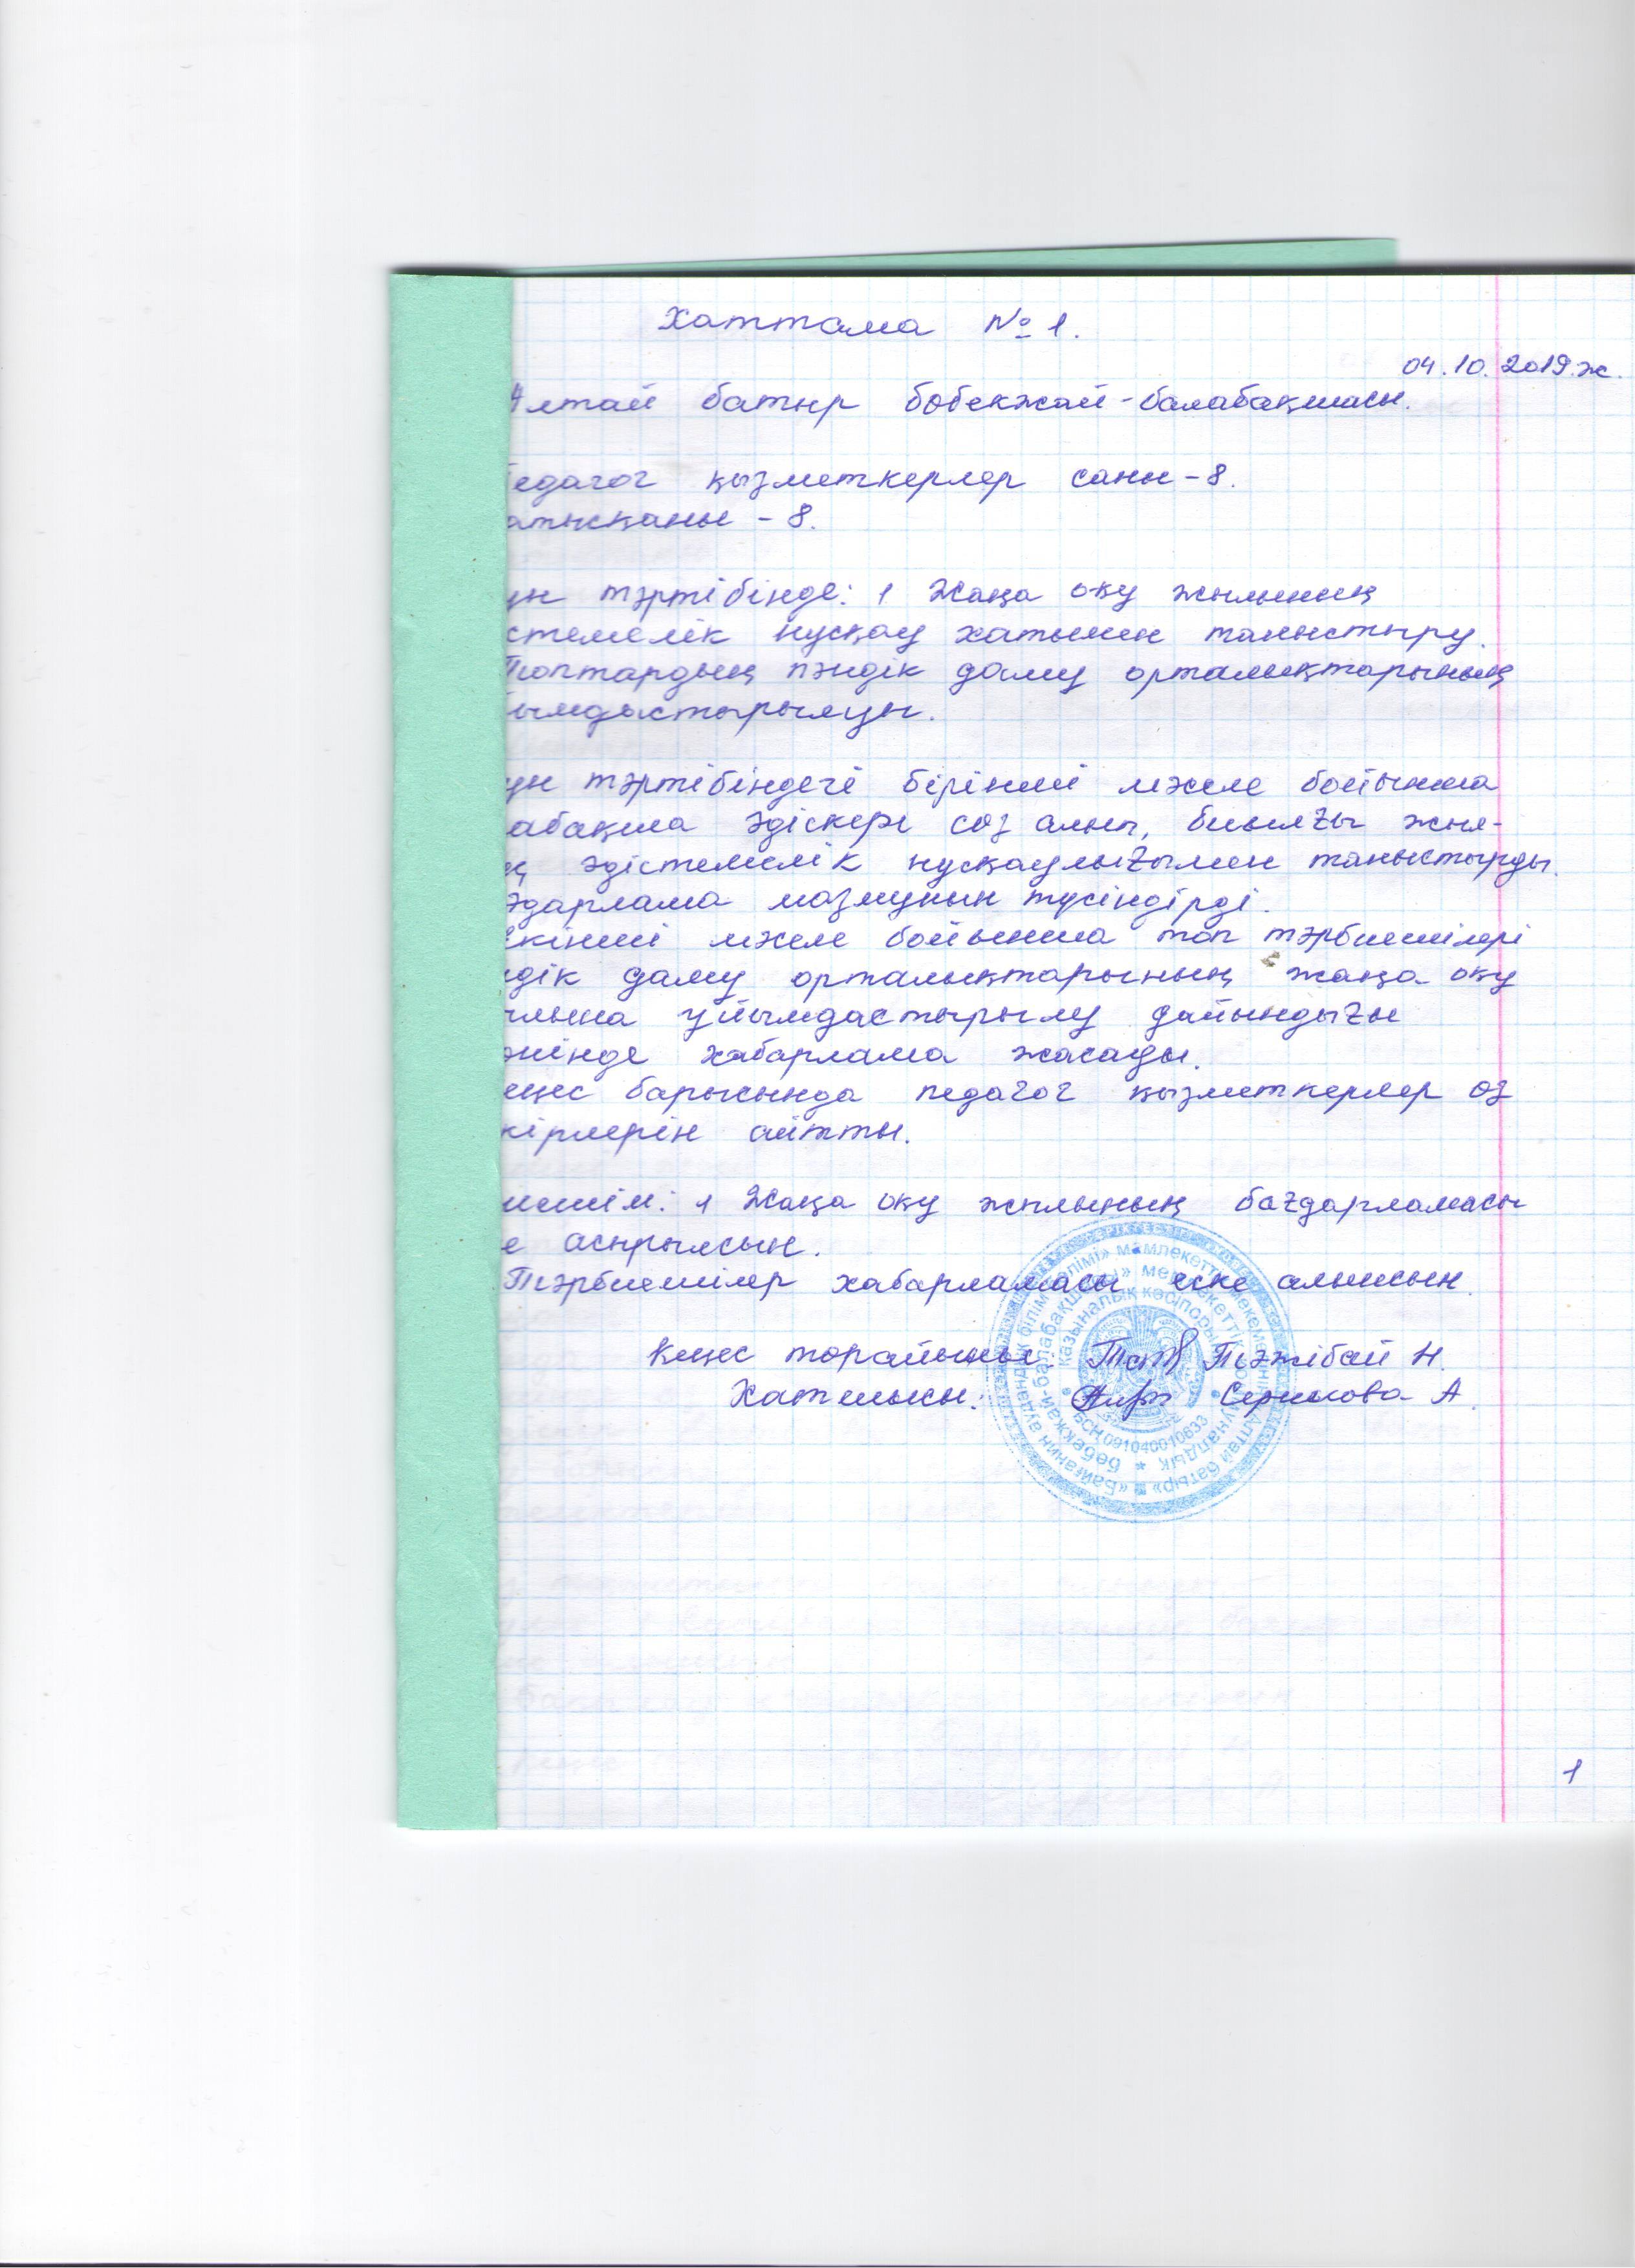 Хаттама № 1.
04.10.2019.ж.
Алтай батыр бөбекжай-балабақшасы.
едагог қызметкерлер саны - 8.
атысқаны - 8.
үн тәртібінде: 1 Жаңа оқу жылының
стемелік нұсқау хатымен таныстыру.
Топтардың пәндік даму орталықтарының
ымдастырылуы.
үн тәртібіндегі бірінші мәселе бойынша
абақша әдіскері сөз алып, биылғы жыл-
ң әдістемелік нұсқаулығымен таныстырды.
ғдарлама мазмұнын түсіндірді.
Екінші мәселе бойынша топ тәрбиешілері
ндік даму орталықтарының жаңа оқу
ылына ұйымдастырылу дайындығы
өнінде хабарлама жасады.
еңес барысында педагог қызметкерлер өз
кірлерін айтты.
шешім: 1 Жаңа оқу жылының бағдарламасы
е асырылсын.
Тәрбиешілер хабарламасы еске алынсын.
Кеңес төрайымы: Тәжібай Н.
Хатшысы: Серикова А.
«Байғанин аудандық білім бөлімі» мемлекеттік мекемесінің «Алтай батыр»
бөбекжай-балабақшасы» мемлекеттік коммуналдық
қазыналық кәсіпорны
БСН 091040010633
1